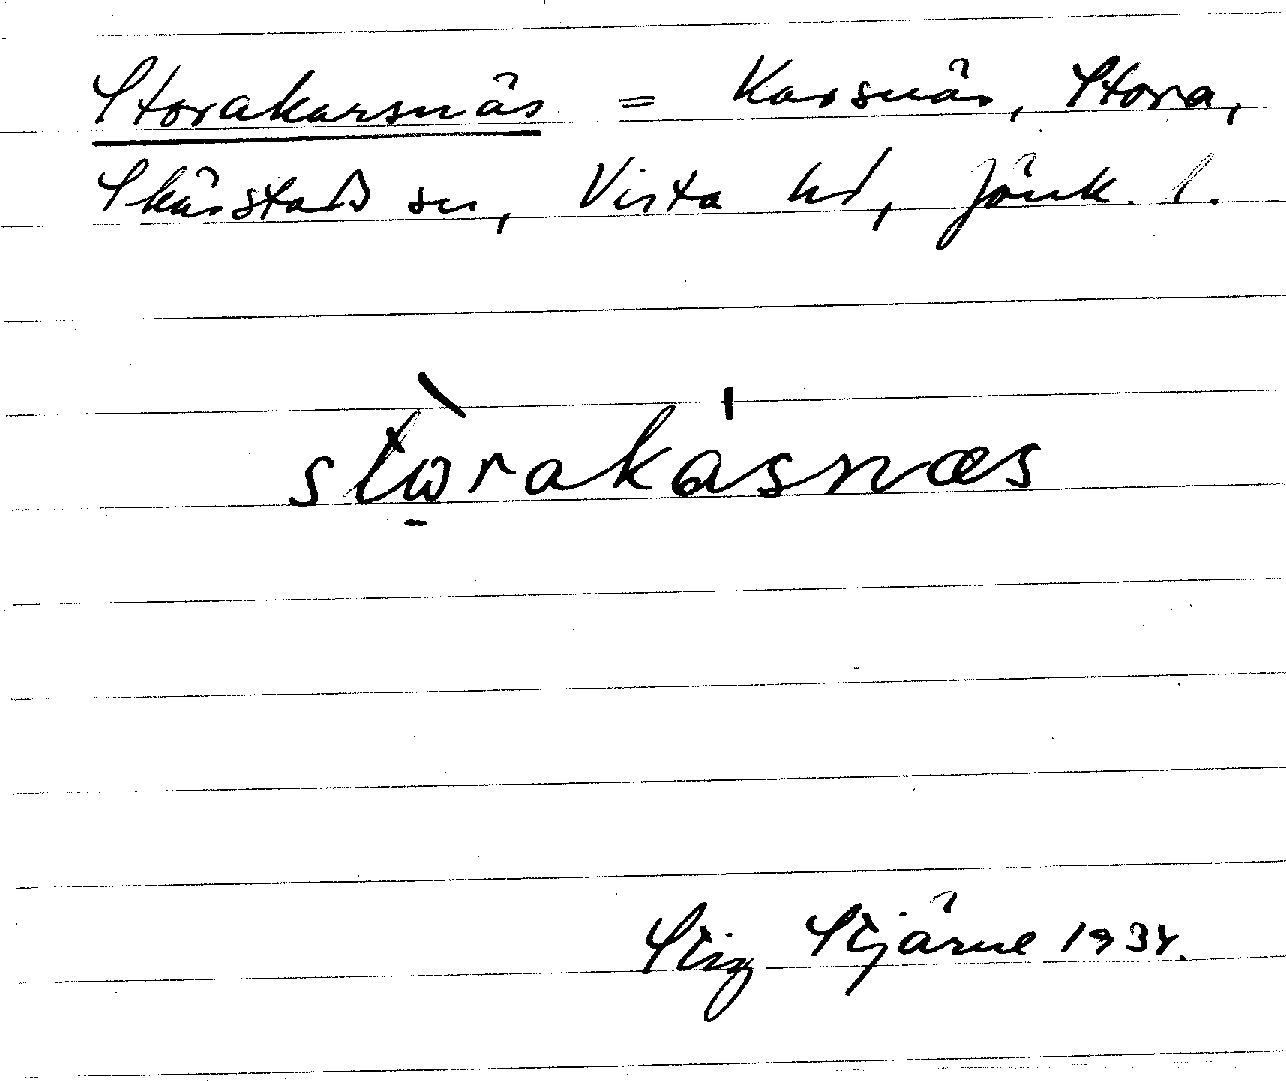 Storakarsnäs = Karsnäs, Stora,
Skärstads sn, Vista hd, Jönk. l.
stὼrakásnæs
Stig Stjärne 1934.